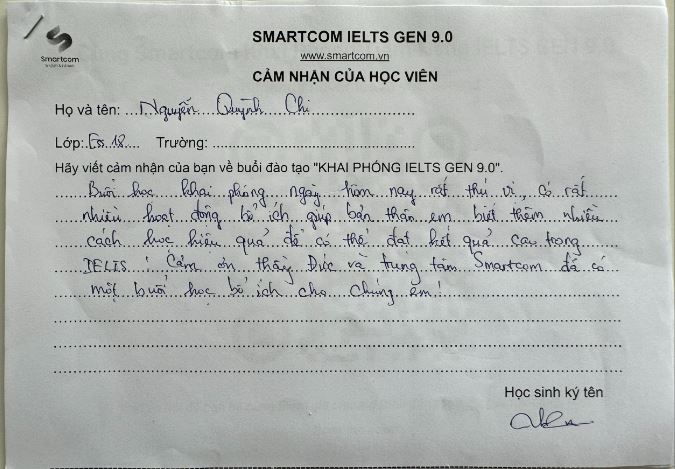 Smartcom
SMARTCOM IELTS GEN 9.0
www.smartcom.vn
CẢM NHẬN CỦA HỌC VIÊN
Họ và tên: Nguyễn Quỳnh Chi
Lớp: E5.18 Trường:
Hãy viết cảm nhận của bạn về buổi đào tạo "KHAI PHÓNG IELTS GEN 9.0".
Buổi học khai phóng ngày hôm nay rất thú vị, có rất
nhiều hoạt động bổ ích giúp bản thân em biết thêm nhiều
cách học hiệu quả để có thể đạt kết quả cao trong
IELTS! Cảm ơn thầy Đức và trung tâm Smartcom đã có
một buổi học bổ ích cho chúng em!
Học sinh ký tên